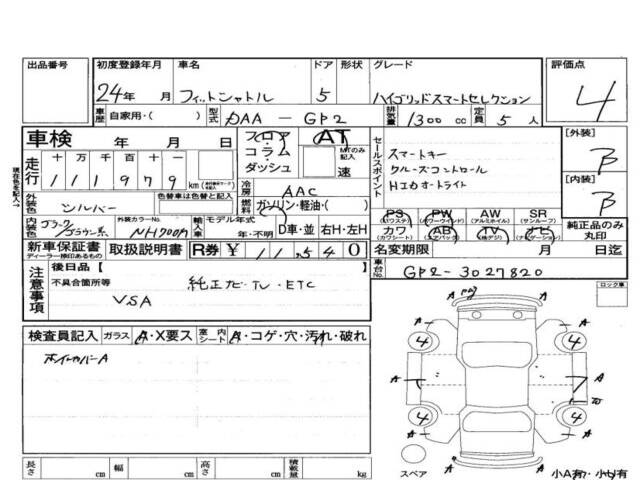 出品番号 初度登録年月 車名 ドア 形状 グレード 評価点
24年 月 フィットシャトル 5 ハイブリッドスマートセレクション 4
車歴 自家用・( ) 型式 DAA - GP2 排気量 1300cc 定員 5人
車検 年 月 日 フロア・コラム・ダッシュ AT MTのみ記入 速
セールスポイント
スマートキー
クルーズコントロール
HIDオートライト
[外装] B
[内装] B
現在色を記入→
走行 十 万 千 百 十 一
111979 km
冷房 AAC
外装色 シルバー 色替車は色替と記入 燃料 ガソリン・軽油・( )
内装色 ブラック ブラウン系 外装カラーNo. NH700M 輸入車 モデル年式 年・不明 D車・並 右H・左H
PS (パワステ) PW (パワーウインド) AW (アルミホイル) SR (サンルーフ)
カワ (カワシート) AB (エアバック) TV (地デジ) ナビ (ナビゲーション)
純正品のみ丸印
新車保証書 ディーラー検印あるもの 取扱説明書 R券 ¥ 11,540
名変期限 月 日迄
車台No. GP2-3027820
注意事項 後日品【 】
不具合箇所等 純正ナビ・TV・ETC
VSA
ロック車
検査員記入 ガラス A・X要ス 室内シート A・コゲ・穴・汚れ・破れ
ホイルカバーA
A A
4 4
A A
4 4
A A
スペア
小A有・小U有
長さ cm 幅 cm 高さ cm 積載量 kg